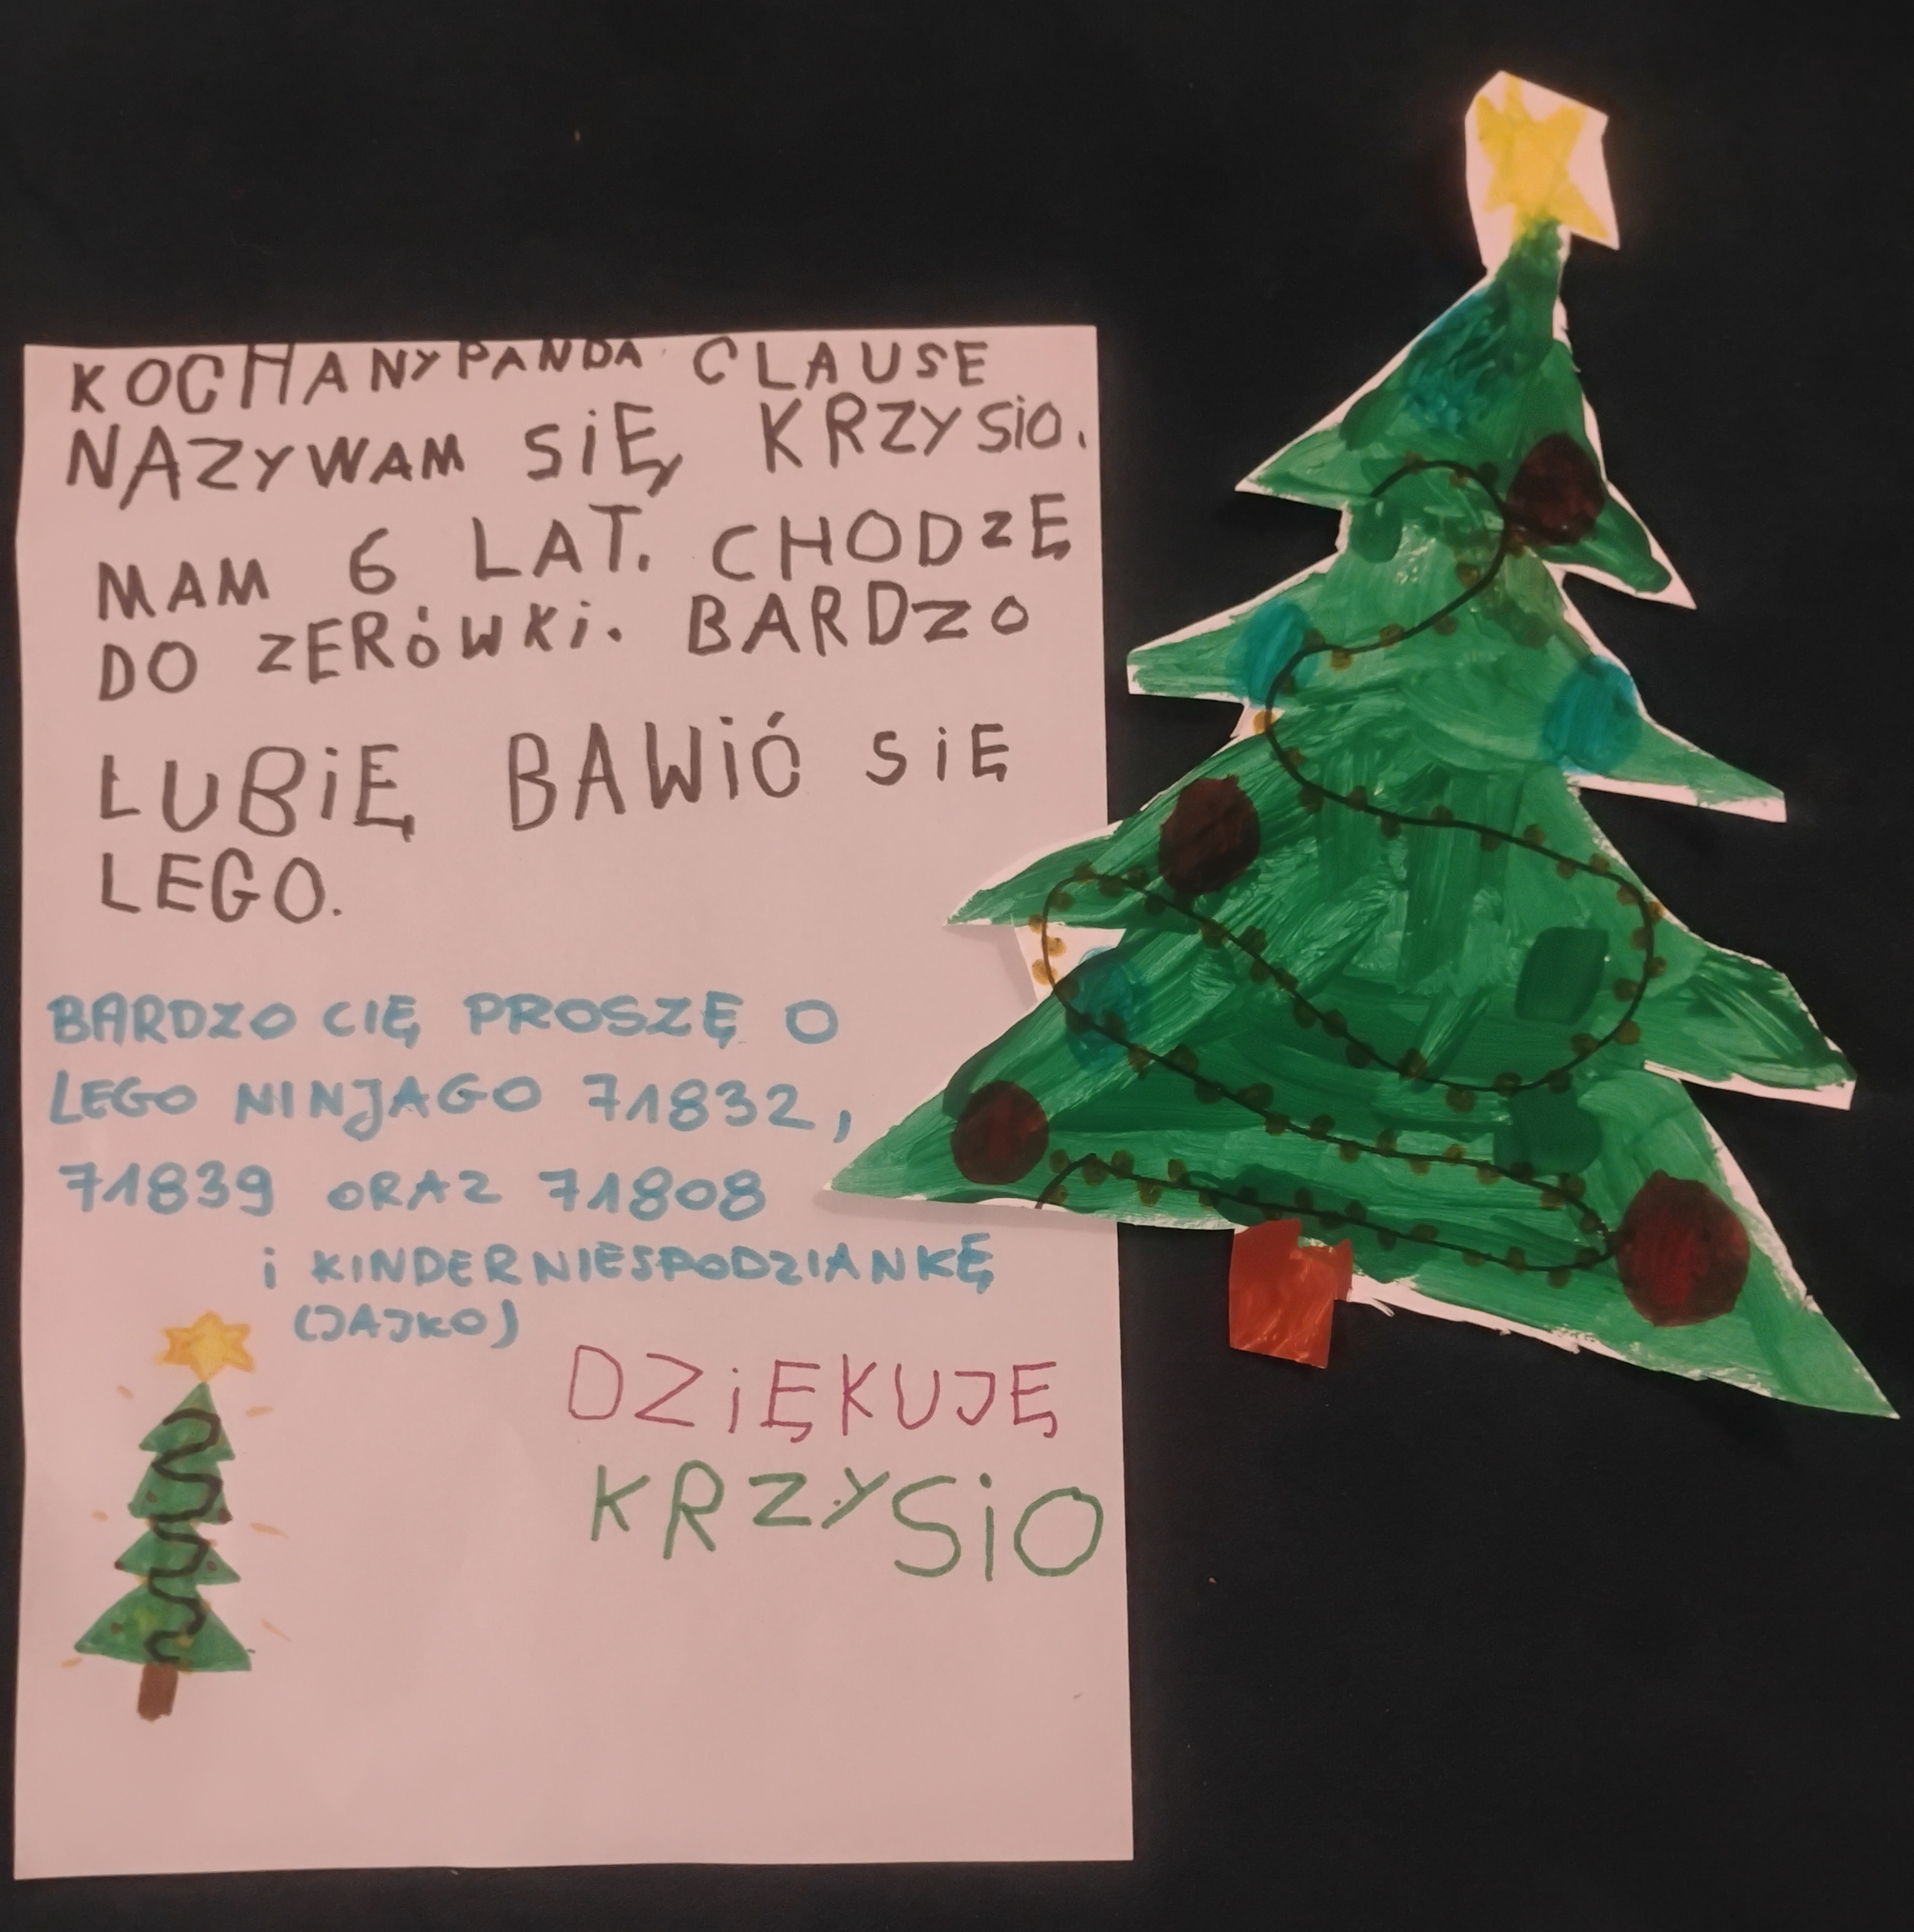 KOCHANY PANDA CLAUSE
NAZYWAM SIĘ KRZYSIO.
MAM 6 LAT. CHODZĘ
DO ZERÓWKI. BARDZO
LUBIĘ BAWIĆ SIĘ
LEGO.
BARDZO CIĘ PROSZĘ O
LEGO NINJAGO 71832,
71839 ORAZ 71808
i KINDERNIESPODZIANKĘ
(JAJKO)
DZIĘKUJĘ
KRZYSIO